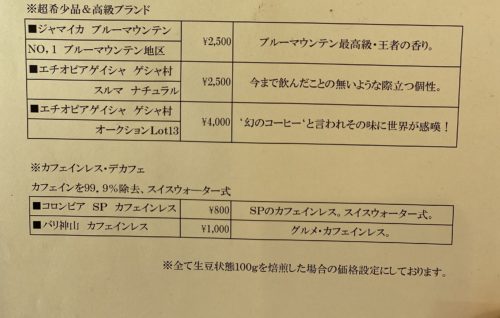 ※超希少品&高級ブランド
■ジャマイカ ブルーマウンテン
NO,1 ブルーマウンテン地区
¥2,500
ブルーマウンテン最高級・王者の香り。
■エチオピアゲイシャ ゲシャ村
スルマ ナチュラル
¥2,500
今まで飲んだことの無いような際立つ個性。
■エチオピアゲイシャ ゲシャ村
オークションLot13
¥4,000
‘幻のコーヒー‘と言われその味に世界が感嘆!
※カフェインレス・デカフェ
カフェインを99,9%除去、スイスウォーター式
■コロンビア SP カフェインレス ¥800 SPのカフェインレス。スイスウォーター式。
■バリ神山 カフェインレス ¥1,000 グルメ・カフェインレス。
※全て生豆状態100gを焙煎した場合の価格設定にしております。